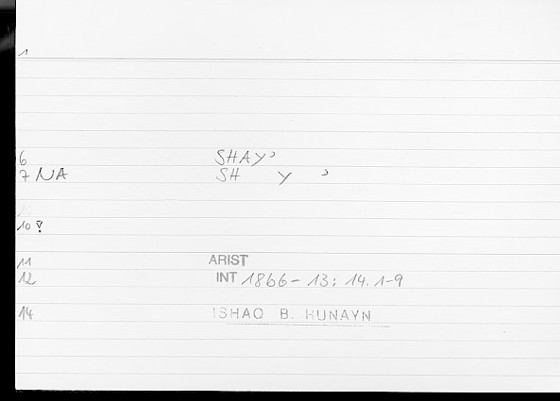 1
6 SHAY'
7 NA SH Y '
10
11 ARIST
12 INT 1866-13; 14.1-9
14 ISHAQ B. HUNAYN